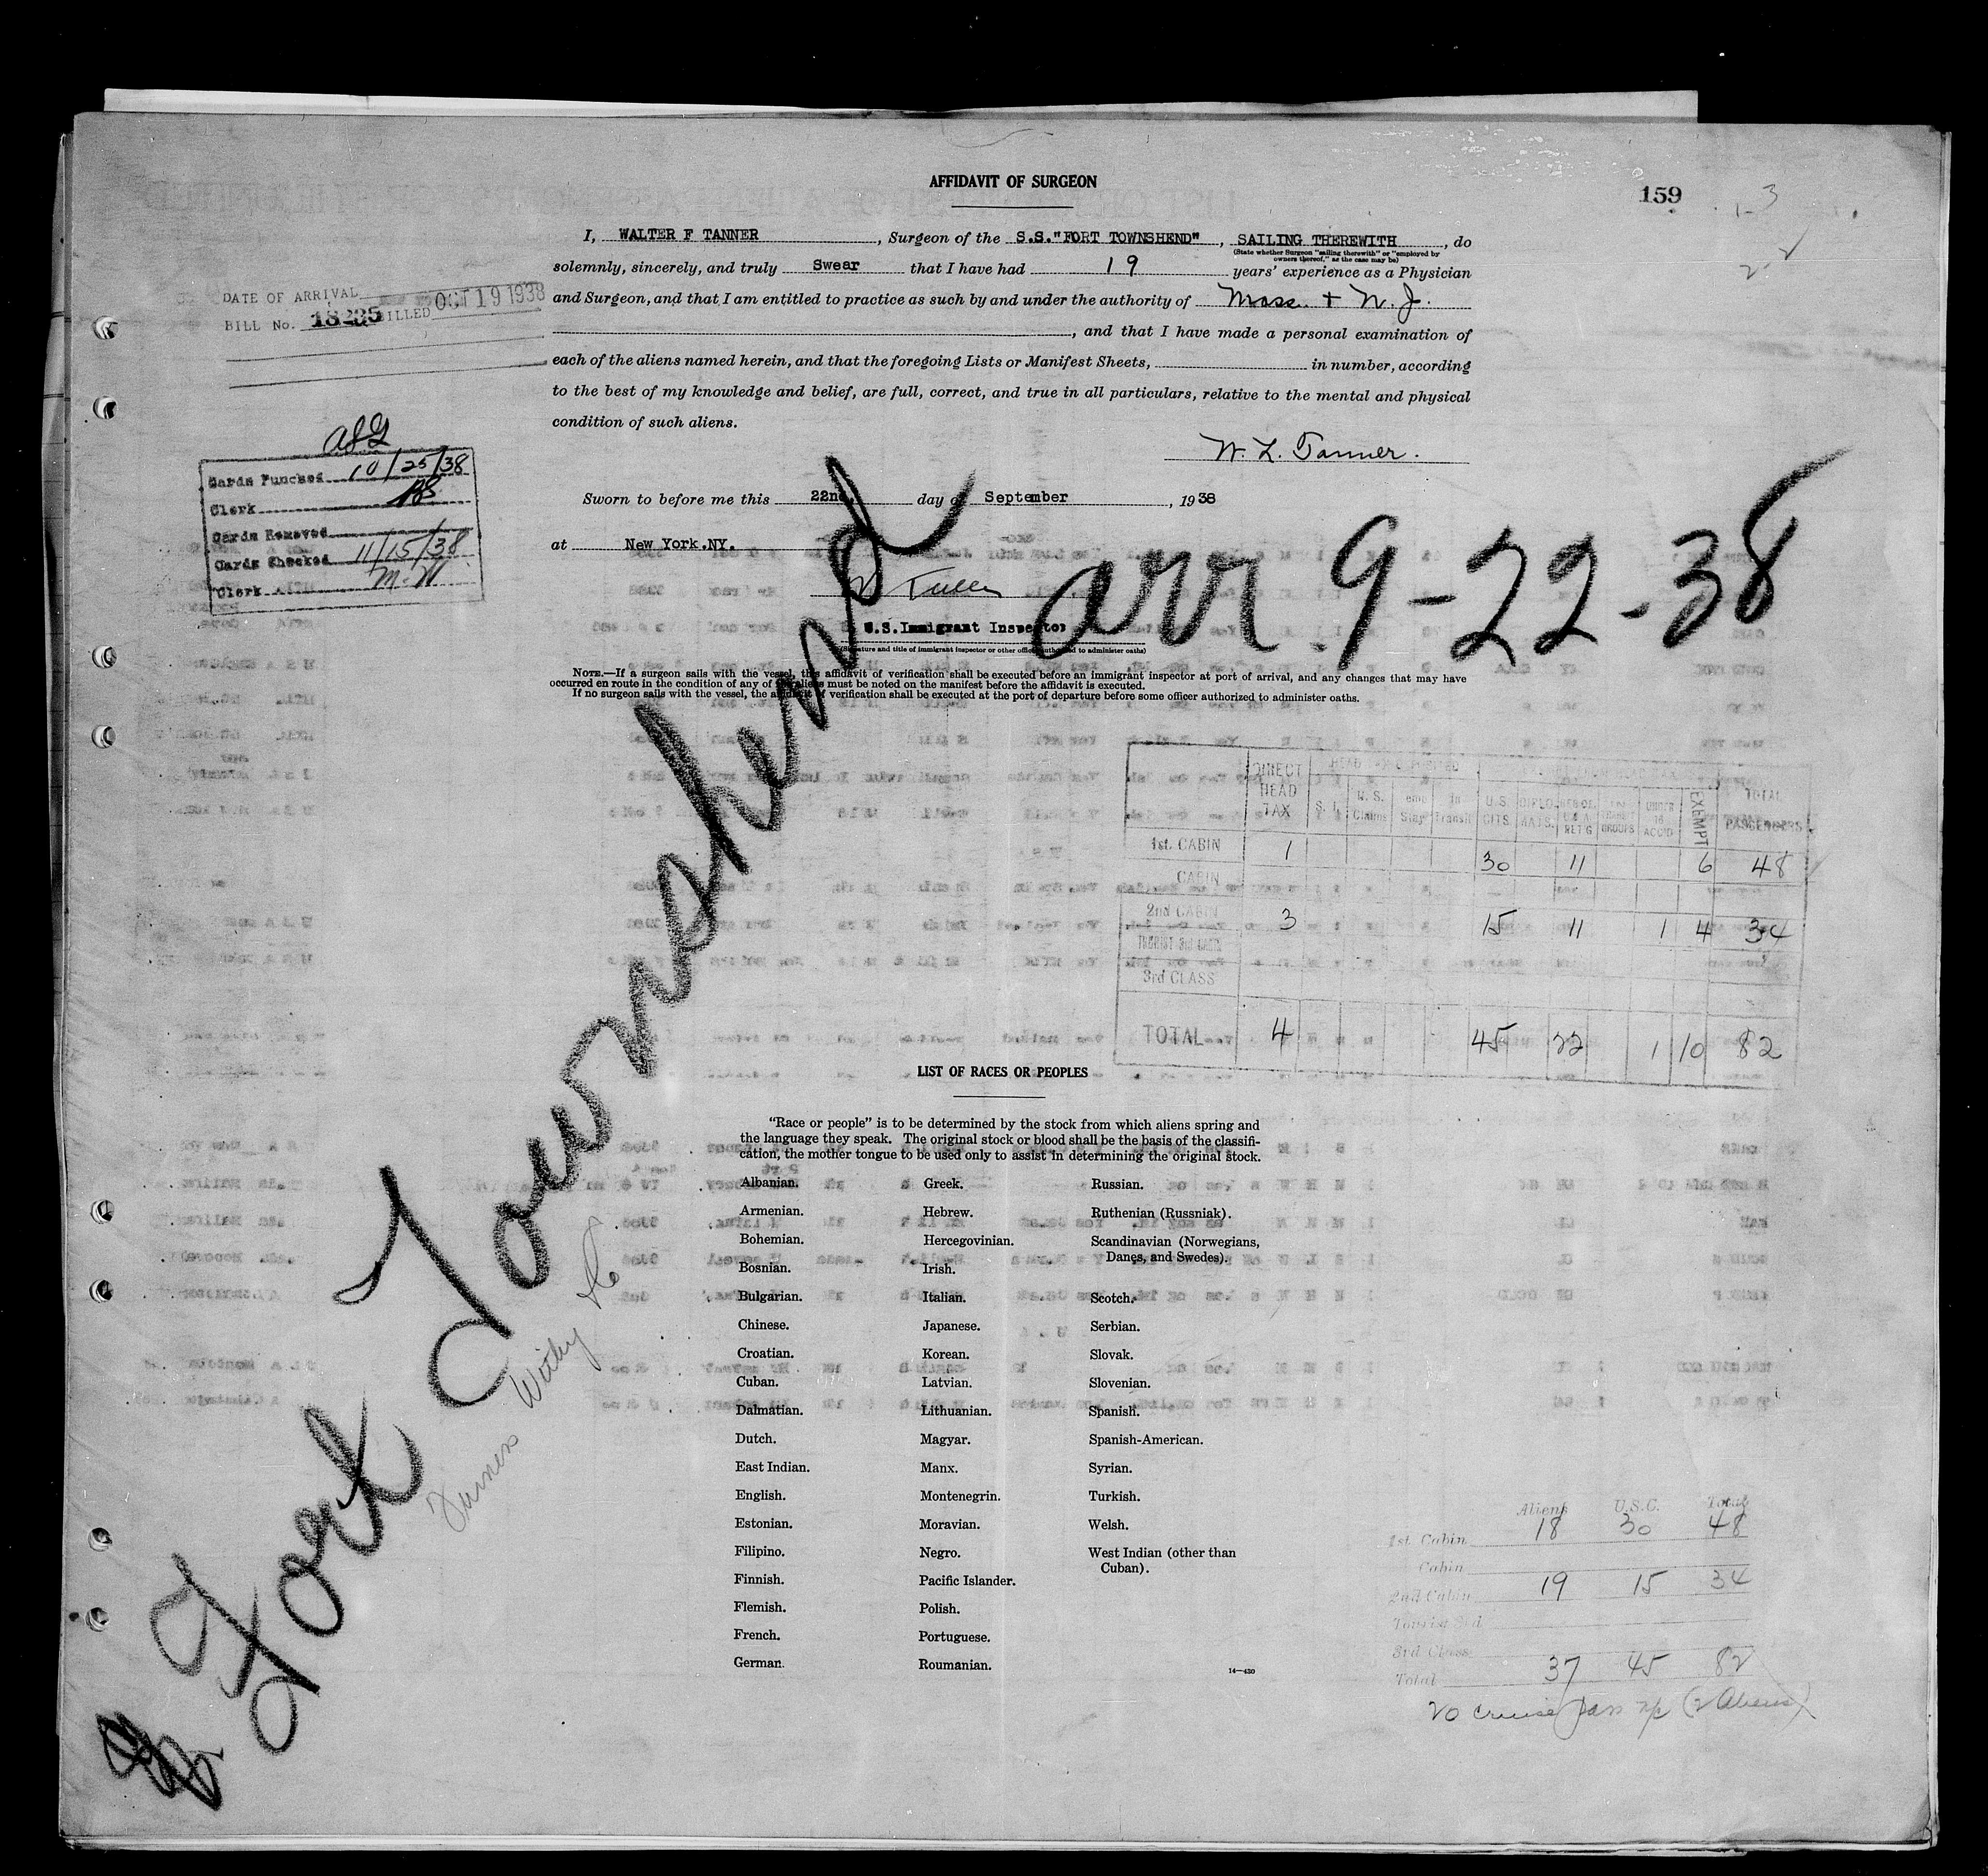 AFFIDAVIT OF SURGEON
159
1-3
I, WALTER F TANNER, Surgeon of the S.S."FORT TOWNSHEND", SAILING THEREWITH, do
(State whether Surgeon "sailing therewith" or "employed by
owners thereof," as the case may be)
solemnly, sincerely, and truly Swear that I have had 19 years' experience as a Physician
and Surgeon, and that I am entitled to practice as such by and under the authority of Mass. + N.J.
, and that I have made a personal examination of
each of the aliens named herein, and that the foregoing Lists or Manifest Sheets, in number, according
to the best of my knowledge and belief, are full, correct, and true in all particulars, relative to the mental and physical
condition of such aliens.
DATE OF ARRIVAL
BILL No. 18235 BILLED OCT 19 1938
Cards Punched 10/25/38
Clerk
Cards Removed
Cards Checked 11/15/38
Clerk M.W.
W. L. Tanner.
Sworn to before me this 22nd. day of September, 1938
at New York.NY.
U.S.Immigrant Inspector
(Signature and title of immigrant inspector or other officer authorized to administer oaths)
arr. 9-22-38
NOTE.—If a surgeon sails with the vessel, this affidavit of verification shall be executed before an immigrant inspector at port of arrival, and any changes that may have
occurred en route in the condition of any of the aliens must be noted on the manifest before the affidavit is executed.
If no surgeon sails with the vessel, the affidavit of verification shall be executed at the port of departure before some officer authorized to administer oaths.
Fort Townshend
Furness Withy
DIRECT HEAD TAX S. I. U. S. Claims Temp Stay In Transit U.S. CITS. DIPLOMATS. UNDER 16 ACC'D EXEMPT TOTAL PASSENGERS
1st. CABIN 1 30 11 6 48
CABIN
2nd CABIN 3 15 11 1 4 34
TOURIST 3rd CABIN
3rd CLASS
TOTAL 4 45 22 1 10 82
LIST OF RACES OR PEOPLES
"Race or people" is to be determined by the stock from which aliens spring and
the language they speak. The original stock or blood shall be the basis of the classifi-
cation, the mother tongue to be used only to assist in determining the original stock.
Albanian.
Armenian.
Bohemian.
Bosnian.
Bulgarian.
Chinese.
Croatian.
Cuban.
Dalmatian.
Dutch.
East Indian.
English.
Estonian.
Filipino.
Finnish.
Flemish.
French.
German.
Greek.
Hebrew.
Hercegovinian.
Irish.
Italian.
Japanese.
Korean.
Latvian.
Lithuanian.
Magyar.
Manx.
Montenegrin.
Moravian.
Negro.
Pacific Islander.
Polish.
Portuguese.
Roumanian.
Russian.
Ruthenian (Russniak).
Scandinavian (Norwegians,
Danes, and Swedes).
Scotch.
Serbian.
Slovak.
Slovenian.
Spanish.
Spanish-American.
Syrian.
Turkish.
Welsh.
West Indian (other than
Cuban).
14—430
Aliens U.S.C. Total
1st. Cabin 18 30 48
Cabin
2nd Cabin 19 15 34
Tourist 3d
3rd Class
Total 37 45 82
20 cruise pass (2 Aliens)